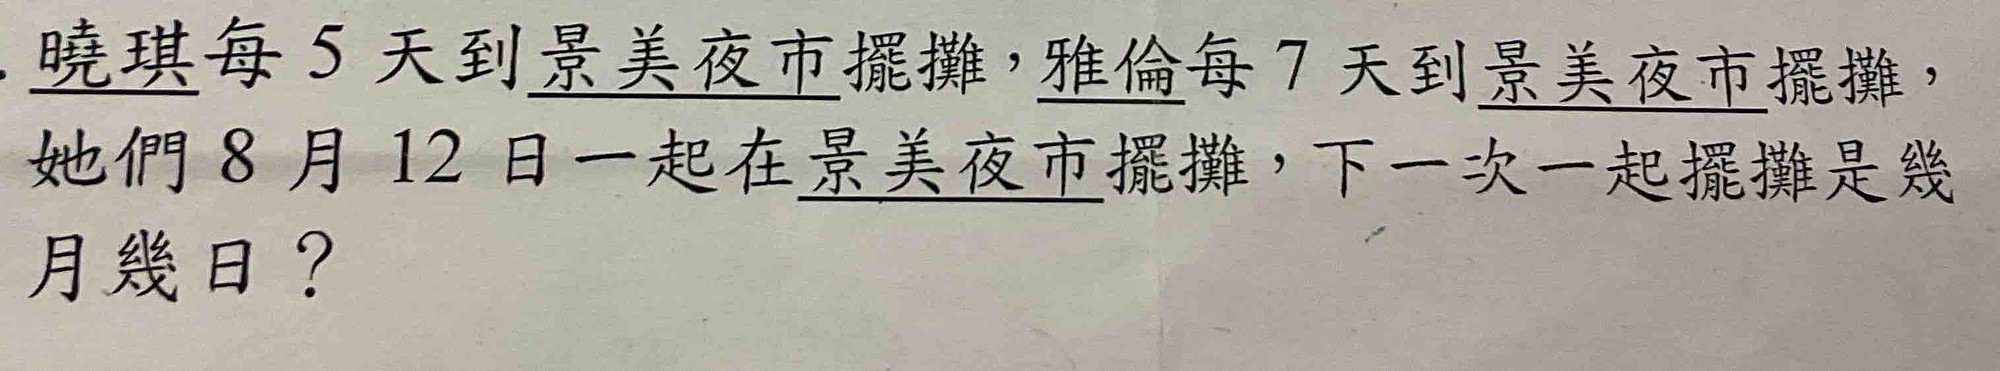 . 曉琪每 5 天到景美夜市擺攤，雅倫每 7 天到景美夜市擺攤，
她們 8 月 12 日一起在景美夜市擺攤，下一次一起擺攤是幾
月幾日？